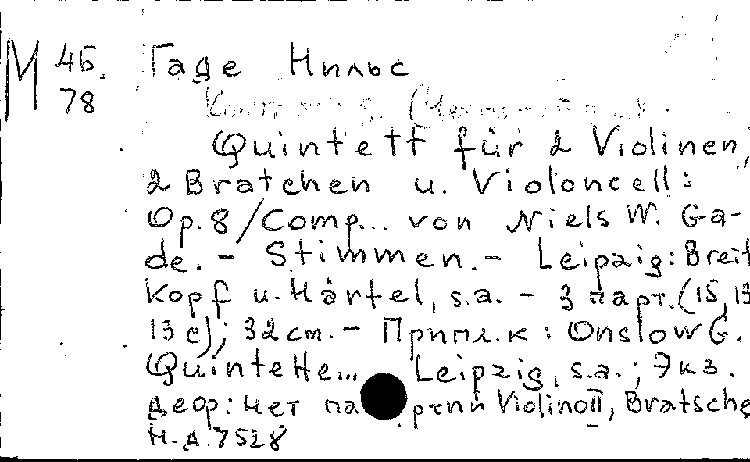 М 46. Гаде Нильс
78
Quintett für 2 Violinen,
2 Bratchen u. Violoncell:
Op. 8 / Comp... von Niels W. Ga-
de. - Stimmen. - Leipzig: Breit
kopf u. Härtel, s.a. - 3 парт. (15, 13
13 с); 32 cm. - Припл. к: Onslow G.
Quintette... Leipzig, s.a.; Экз.
деф: нет па ртий Violino II, Bratsche
Н.д. 7528